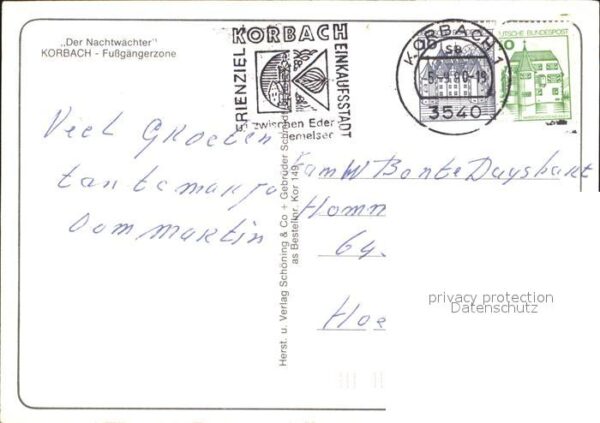 „Der Nachtwächter"
KORBACH - Fußgängerzone
KORBACH
ERIENZIEL
EINKAUFSSTADT
zwischen Eder
KORBACH 1
3540
UTSCHE BUNDESPOST
Viel Groeten
tante marja
oom martin
Herst. u. Verlag Schöning & Co + Gebrüder Schmidt
as Bestellnr. Kor 149
Fam W Bonte Dayshart
Homm
64.
Hoe
privacy protection
Datenschutz